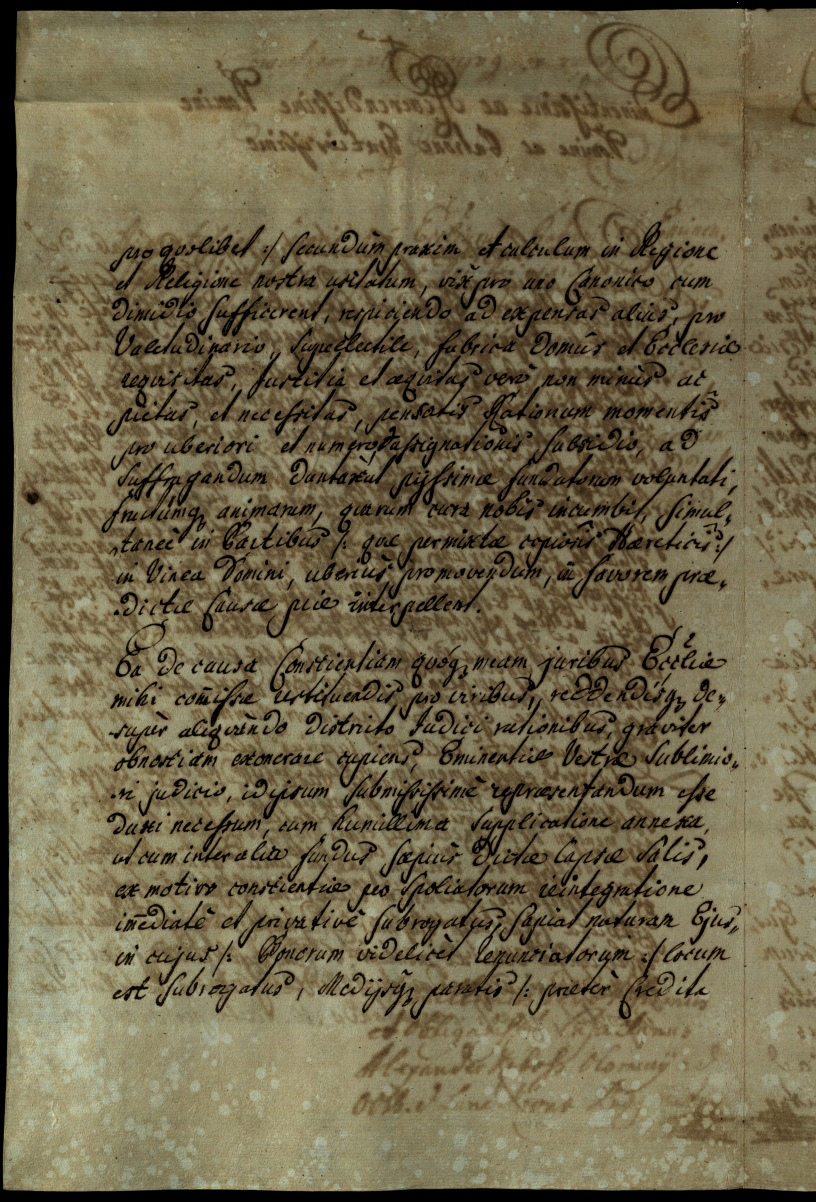 pro quolibet :/ secundùm praxim et calculum in Regione
et Religione nostra usitatum, vix pro uno Canonico cum
dimidio sufficerent, respiciendo ad expensas alias, pro
Valetudinario, Supellectile, fabrica Domûs et Ecclesiæ
requisitas, Justitia et æquitas verò non minùs ac
pietas, et necessitas, pensatis Rationum momentis
pro uberiori et assignationis subsidio, ad
suffragandum duntaxat pijssimæ fundatorum voluntati,
fructumq animarum, quarum cura nobis incumbit, simul-
-taneè in Partibus /: quæ permixtæ copiosis Hæreticis :/
in Vinea Domini, uberiùs promovendum, in favorem præ-
-dictæ Causæ piæ interpellent.
Ea de causa Conscientiam quóq meam juribus Eccliæ
mihi com̄issæ restituendis pro viribus, reddendisq de-
-supèr aliquàndo districto Judici rationibus, graviter
obnoxiam exonerare cupiens, Eminentiæ Vestræ Sublimio-
-ri judicio, idipsum submississimè repræsentandum esse
duxi necessum, cum humillima supplicatione annexa,
ut cum inter alia fundus sæpiùs dictæ Cassæ Salis,
ex motivo conscientiæ pro spoliatorum reintegratione
im̄ediatè et privativè subrogatus, sapiat naturam Ejus,
in cujus /: Bonorum videlicèt renunciatorum :/ locum
est subrogatus, Medijsq paratis /: præter Credita